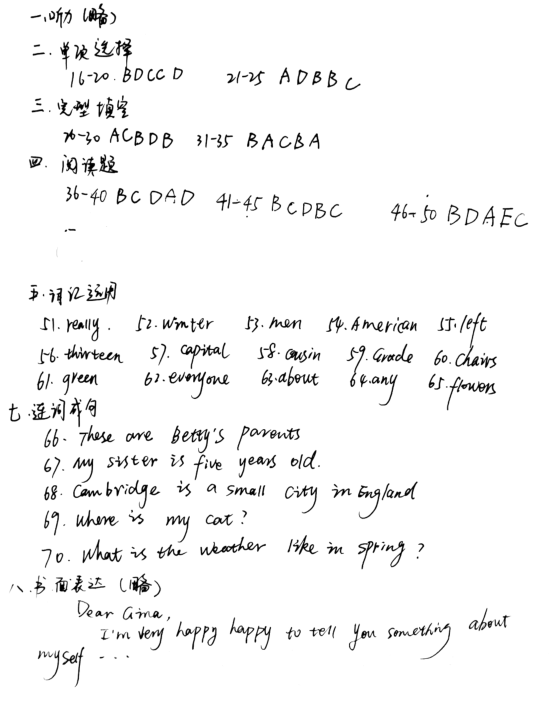 一.听力(略)
二.单项选择
16-20. BDCCD 21-25 ADBBC
三.完型填空
26-30 ACBDB 31-35 BACBA
四.阅读题
36-40 BCDAD 41-45 BCDBC 46-50 BDAEC
五.词汇运用
51. really. 52. winter 53. men 54. American 55. left
56. thirteen 57. capital 58. cousin 59. Grade 60. chairs
61. green 62. everyone 63. about 64. any 65. flowers
七.连词成句
66. These are Betty's parents
67. My sister is five years old.
68. Cambridge is a small city in England
69. Where is my cat?
70. What is the weather like in spring?
八.书面表达(略)
Dear Gina,
I'm very happy happy to tell you something about
myself ...